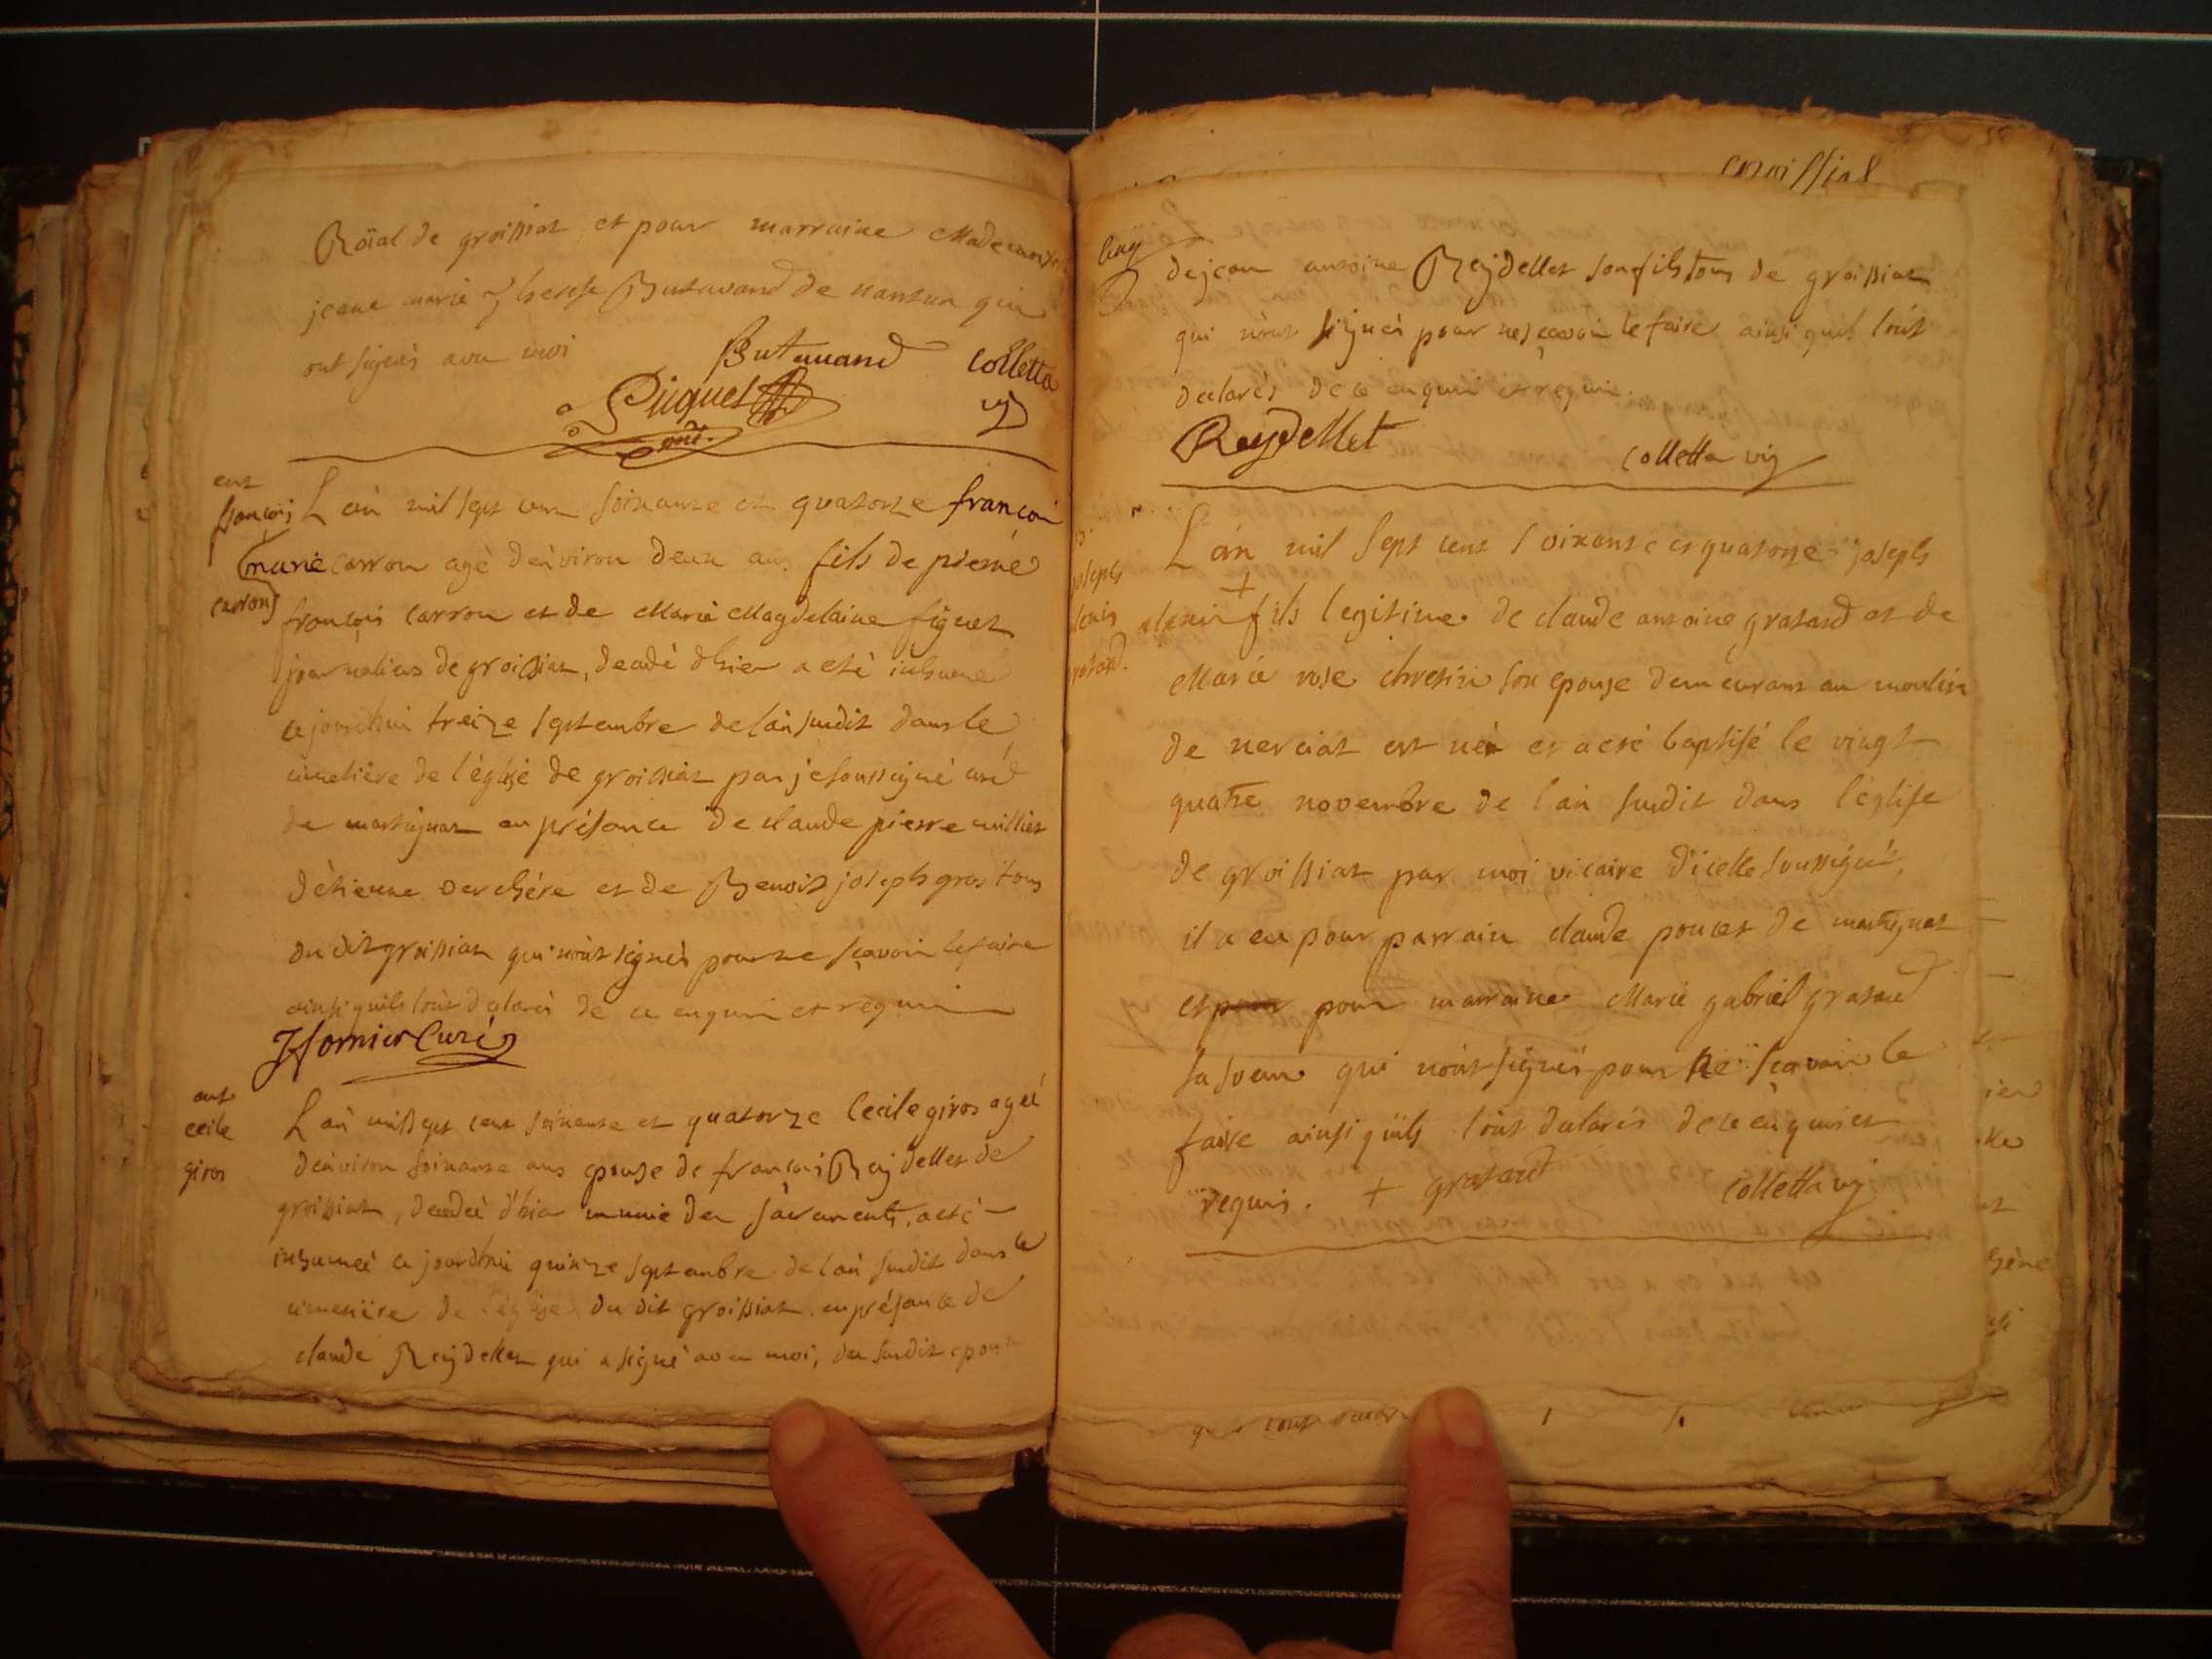 Roïal de groissiat et pour marraine Mademoiselle
jeane marie Therese Butavand de nantua qui
ont signés avec moi
Butavand Colletta
Piquet vic
ent
françois
marie
carron
L'an mil sept cent soixante et quatorze françoi
carron agé d'environ deux ans fils de pierre
françois carron et de Marie Magdelaine figuet
journaliers de groissiat, decedé d'hier a eté inhumé
ce jourdhui treize septembre de l'an susdit dans le
cimetière de l'église de groissiat par je soussigné curé
de martignat en présance de claude pierre milliet
d'étienne verchére et de Benoit joseph gros tous
du dit groissiat qui n'ont signés pour ne sçavoir le faire
ainsi quils l'ont declarés de ce enquri et requri
Hornier Curé
ent
cecile
giros
L'an mil sept cent soixante et quatorze Cecile giros ageé
d'environ soixante ans epouse de françois Reydellet de
groissiat, decedeé d'hier munie des sacrements, a eté
inhumeé ce jourdhui quinze septembre de l'an susdit dans le
cimetière de l'église du dit groissiat en présance de
claude Reydellet qui a signé avec moi, du susdit epoux
de jean antoine Reydellet son fils tous de groissiat
qui n'ont signés pour ne sçavoir le faire ainsi quils l'ont
declarés de ce enquri et requri
Reydellet Colletta vic
joseph
louis
gratard.
L'an mil sept cent soixante et quatorze joseph
+
louis fils legitime de claude antoine gratard et de
Marie rose chretin son epouse demeurans au moulin
de nerciat est né et a eté baptisé le vingt
quatre novembre de l'an susdit dans l'église
de groissiat par moi vicaire d'icelle soussigné,
il a eu pour parrain claude poncet de martignat
et pour pour marraine Marie gabriel gratard
sa soeur qui n'ont signés pour ne sçavoir le
faire ainsi quils l'ont declarés de ce enquris et
requris. + gratard Colletta vic